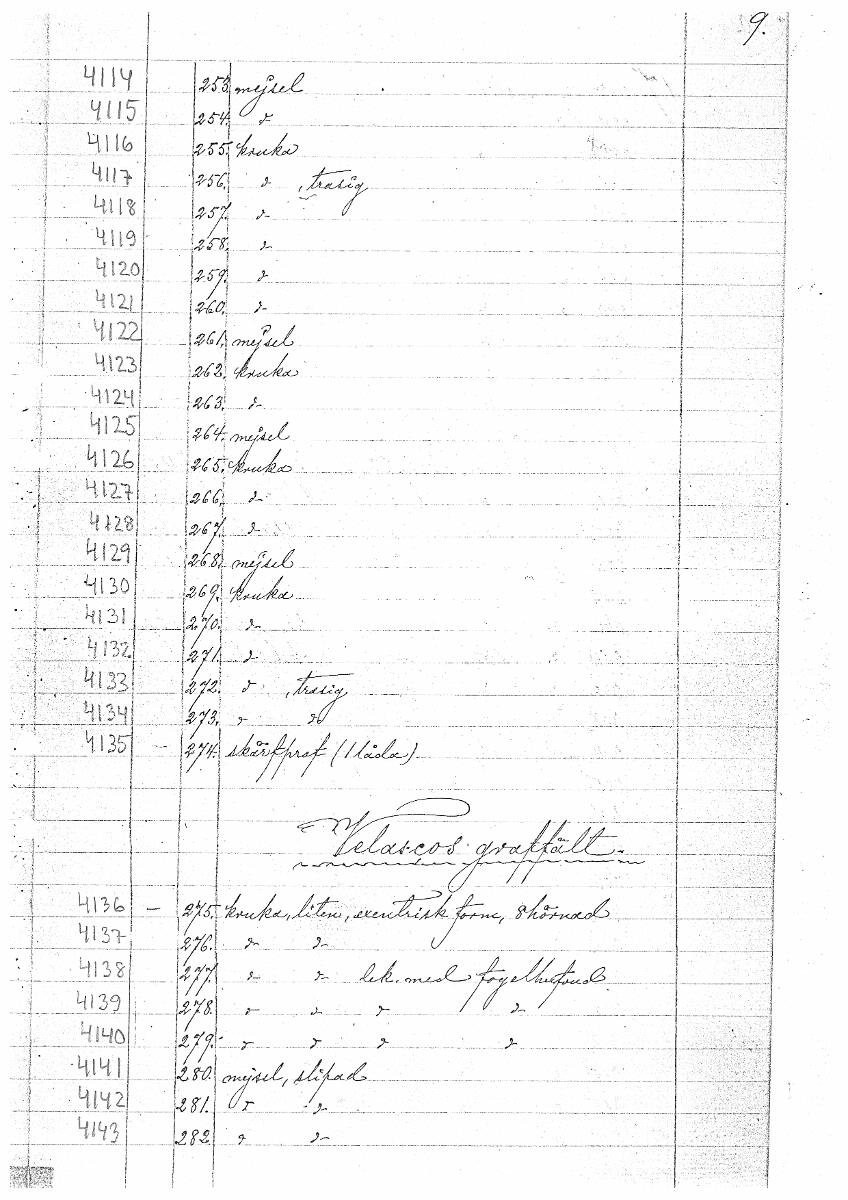 9.
4114 253. mejsel
4115 254. d
4116 255. kruka
4117 256. d , trasig
4118 257. d
4119 258. d
4120 259. d
4121 260. d
4122 261. mejsel
4123 262. kruka
4124 263. d
4125 264. mejsel
4126 265. kruka
4127 266. d
4128 267. d
4129 268. mejsel
4130 269. kruka
4131 270. d
4132 271. d
4133 272. d , trasig
4134 273. d do
4135 - 274. skärfprof (1 låda)
Velascos graffält.
4136 - 275. kruka, liten, exentrisk form, 8hörnad
4137 276. d d
4138 277. d d lek. med fogelhufvud.
4139 278. d d d d
4140 279. d d d d
4141 280. mejsel, slipad
4142 281. d d
4143 282. d d